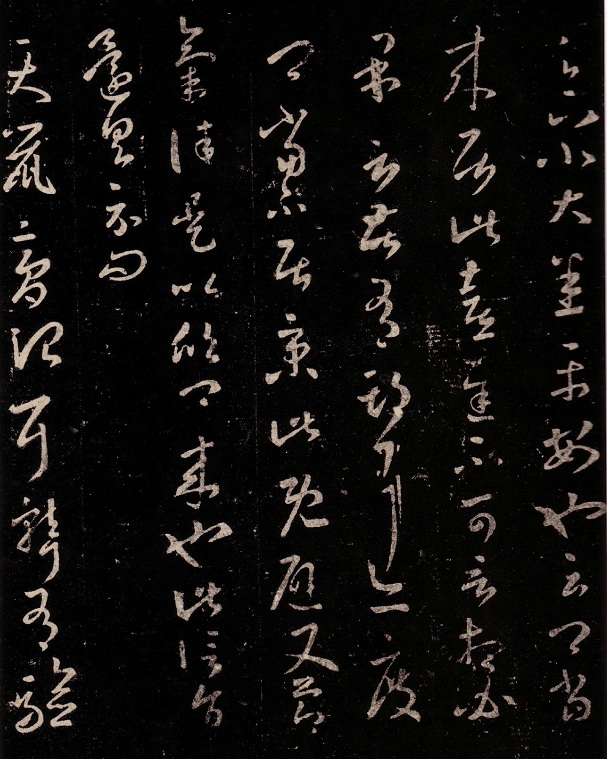 足下小大悉平安也云卿當
來居此喜遲不可言想必
果言苦有期耳亦度
卿當不居京此既避又節
氣佳是以欣卿來也此信旨
還具示問
天鼠膏治耳聾有驗